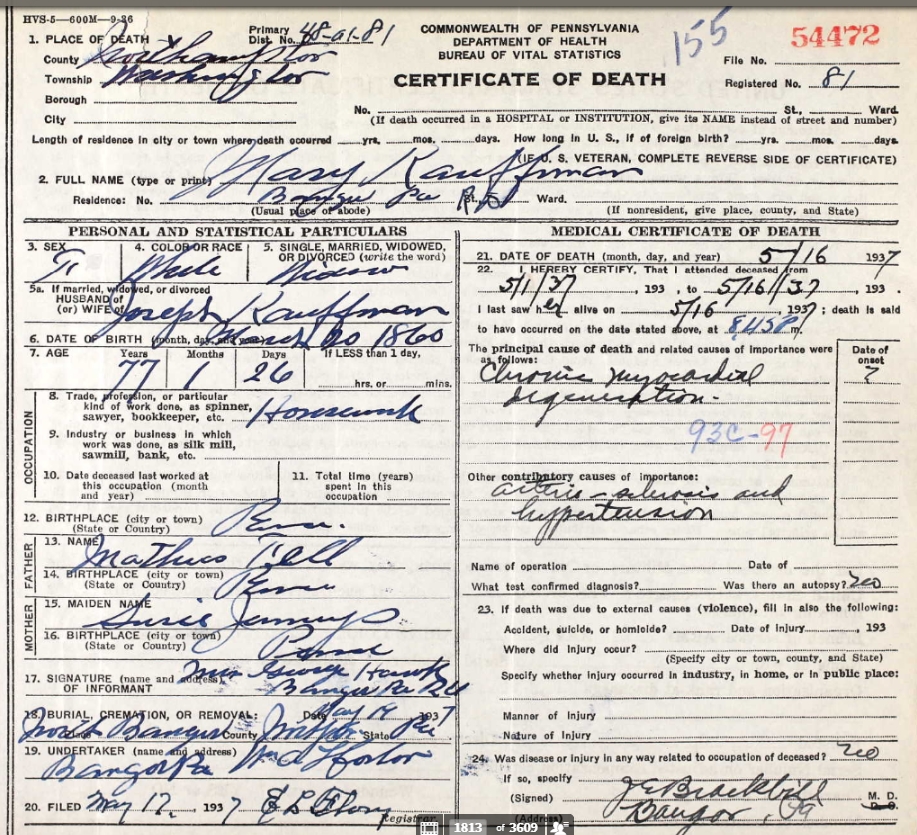 HVS-5—600M—9-36
Primary Dist. No. 48-01-81
COMMONWEALTH OF PENNSYLVANIA
DEPARTMENT OF HEALTH
BUREAU OF VITAL STATISTICS
CERTIFICATE OF DEATH
155
54472
File No.
Registered No. 81
1. PLACE OF DEATH
County Northampton
Township Washington
Borough
City
No. St., Ward.
(If death occurred in a HOSPITAL or INSTITUTION, give its NAME instead of street and number)
Length of residence in city or town where death occurred yrs. mos. days. How long in U. S., if of foreign birth? yrs. mos. days.
(IF U. S. VETERAN, COMPLETE REVERSE SIDE OF CERTIFICATE)
2. FULL NAME (type or print) Mary Kauffman
Residence: No. Bangor Pa St., Ward.
(Usual place of abode) (If nonresident, give place, county, and State)
PERSONAL AND STATISTICAL PARTICULARS
3. SEX F
4. COLOR OR RACE White
5. SINGLE, MARRIED, WIDOWED, OR DIVORCED (write the word) Widow
5a. If married, widowed, or divorced
HUSBAND of
(or) WIFE of Joseph Kauffman
6. DATE OF BIRTH (month, day, and year) March 20 1860
7. AGE Years 77 Months 1 Days 26 If LESS than 1 day,
hrs. or mins.
OCCUPATION
8. Trade, profession, or particular
kind of work done, as spinner,
sawyer, bookkeeper, etc. Housework
9. Industry or business in which
work was done, as silk mill,
sawmill, bank, etc.
10. Date deceased last worked at
this occupation (month
and year)
11. Total time (years)
spent in this
occupation
12. BIRTHPLACE (city or town)
(State or Country) Penna.
FATHER
13. NAME Mathias
14. BIRTHPLACE (city or town)
(State or Country) Penna
MOTHER
15. MAIDEN NAME Susie
16. BIRTHPLACE (city or town)
(State or Country) Penna
17. SIGNATURE (name and address) Mrs George
OF INFORMANT Bangor Pa
18. BURIAL, CREMATION, OR REMOVAL: Date May 19 1937
Place North Bangor County State Pa
19. UNDERTAKER (name and address)
Bangor Pa
20. FILED May 17, 1937
Registrar
MEDICAL CERTIFICATE OF DEATH
21. DATE OF DEATH (month, day, and year) 5/16 1937
22. I HEREBY CERTIFY, That I attended deceased from
5/1/37, 193 , to 5/16/37, 193 .
I last saw her alive on 5/16, 1937; death is said
to have occurred on the date stated above, at 8:45 P m.
The principal cause of death and related causes of importance were
as follows:
Date of onset
?
Chronic myocardial
degeneration.
93C-97
Other contributory causes of importance:
arterio-sclerosis and
hypertension
Name of operation Date of
What test confirmed diagnosis? Was there an autopsy? no
23. If death was due to external causes (violence), fill in also the following:
Accident, suicide, or homicide? Date of injury , 193
Where did injury occur?
(Specify city or town, county, and State)
Specify whether injury occurred in industry, in home, or in public place:
Manner of injury
Nature of injury
24. Was disease or injury in any way related to occupation of deceased? no
If so, specify
(Signed) J C Brackbill M. D.
(Address) Bangor, Pa
1813 of 3609